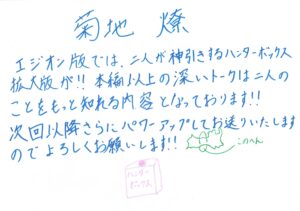 菊地 燎
エジオン版では、二人が神引きするハンターボックス
拡大版が!! 本編以上の深いトークは二人の
ことをもっと知れる内容となっております!!
次回以降さらにパワーアップしてお送りいたします
のでよろしくお願いします!!
このへん
ハンター
ボックス